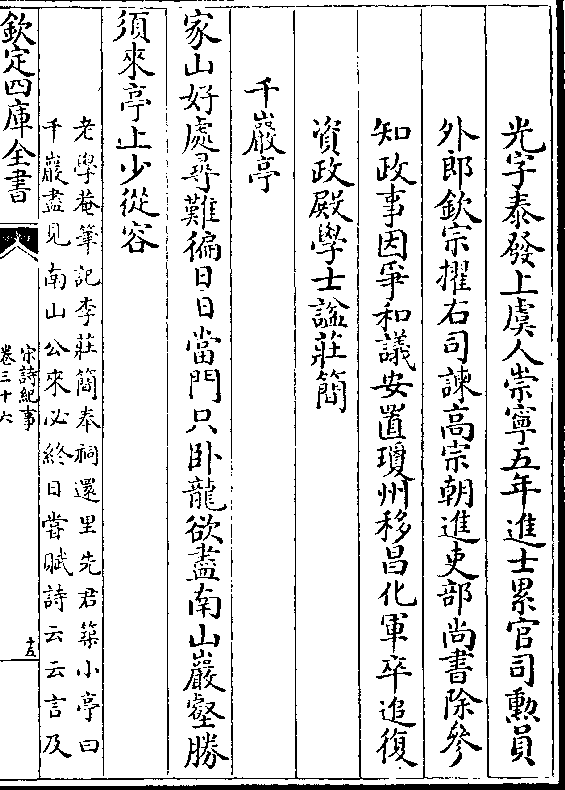 光字泰發上虞人崇寧五年進士累官司勲員
外郎欽宗擢右司諫高宗朝進吏部尚書除參
知政事因爭和議安置瓊州移昌化軍卒追復
資政殿學士諡莊簡
千巖亭
家山好處尋難徧日日當門只卧龍欲盡南山巖壑勝
須來亭上少從容
老學菴筆記李莊簡奉祠還里先君築小亭曰
千巖盡見南山公來必終日嘗賦詩云云言及
欽定四庫全書
宋詩紀事
卷三十六
十五